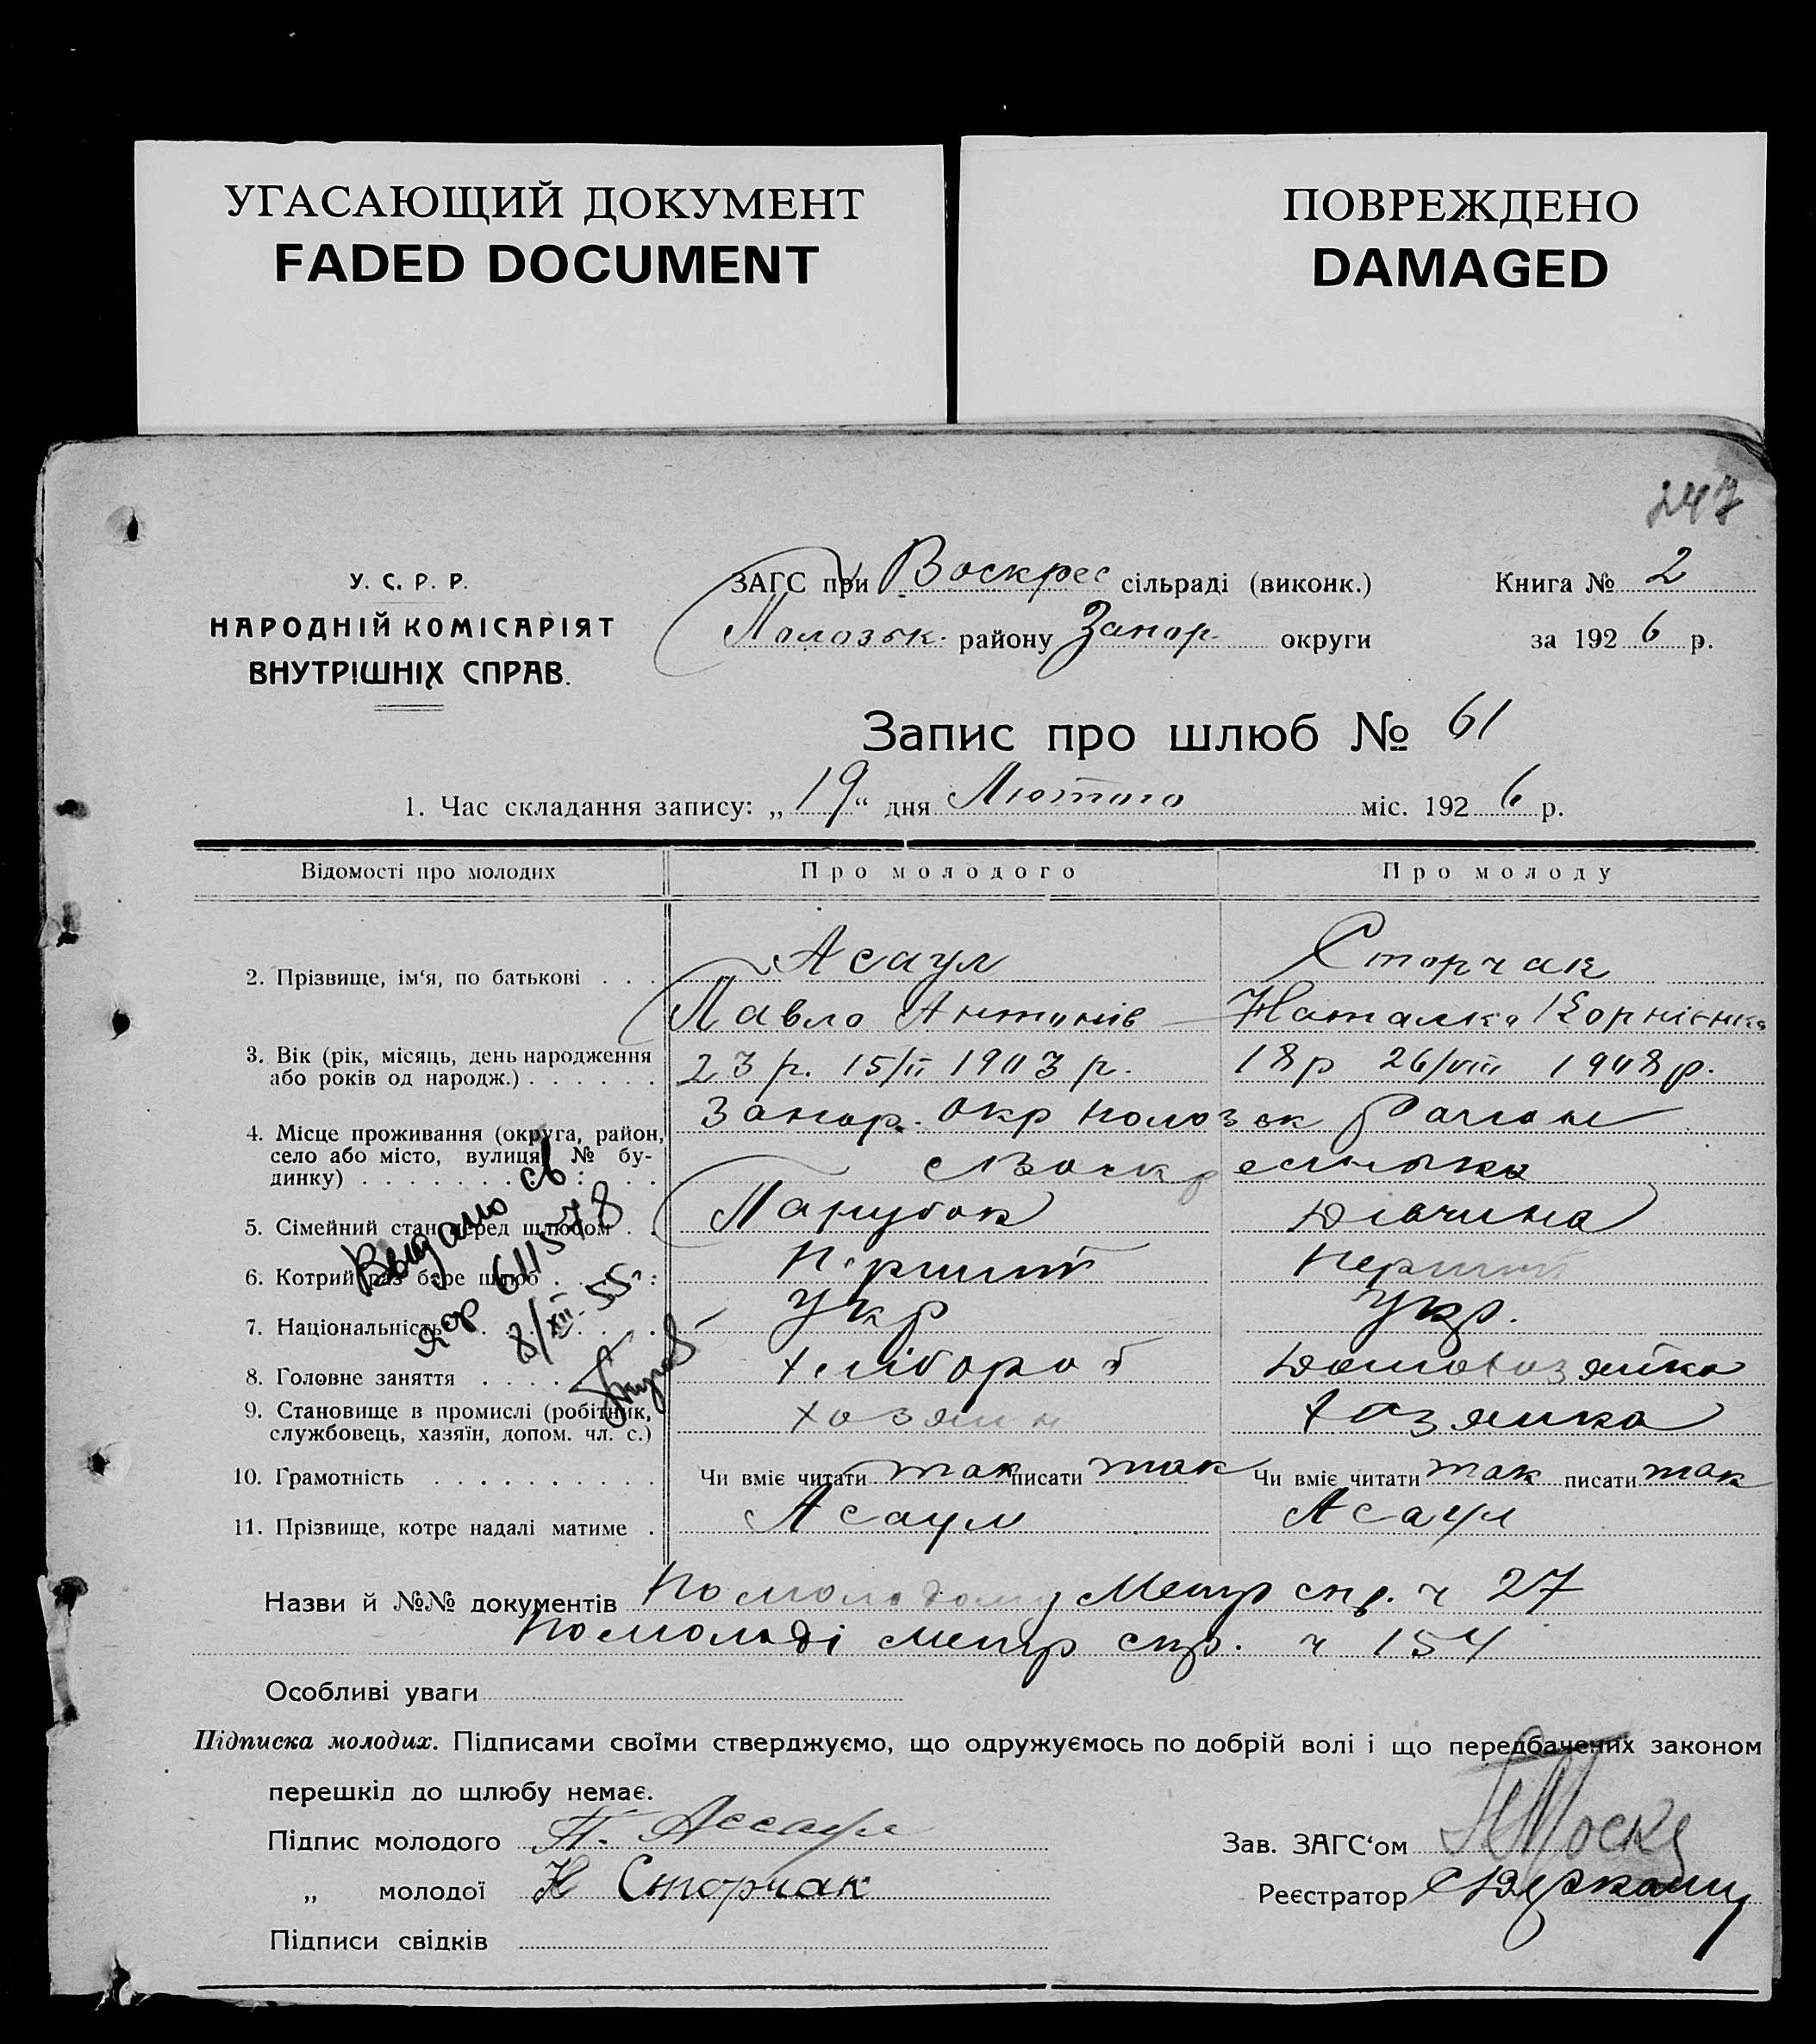 УГАСАЮЩИЙ ДОКУМЕНТ
FADED DOCUMENT
ПОВРЕЖДЕНО
DAMAGED
247
У. С. Р. Р.
НАРОДНІЙ КОМІСАРІЯТ
ВНУТРІШНІХ СПРАВ.
ЗАГС при Воскрес сільраді (виконк.) Книга № 2
Пологзьк. району Запор. округи за 1926 р.
Запис про шлюб № 61
1. Час складання запису: „19“ дня Лютого міс. 1926 р.
Відомості про молодих Про молодого Про молоду
2. Прізвище, ім‘я, по батькові . . . Асаул Сторчак
Павло Антонів Наталка Корнієнко
3. Вік (рік, місяць, день народження 23 р. 15/II 1903 р. 18 р 26/VIII 1908 р.
або років од народж.) . . . . . .
4. Місце проживання (округа, район, Запор. Окр Полозьк Район
село або місто, вулиця, № бу-
динку) . . . . . . . . . . . .
5. Сімейний стан перед шлюбом . . Парубок Дівчина
6. Котрий раз бере шлюб . . . . : Перший Перший
7. Національність . . . . . . . . Укр Укр.
8. Головне заняття . . . . Хлібороб Домохозяйка
9. Становище в промислі (робітник, хозяин хозяйка
службовець, хазяїн, допом. чл. с.)
10. Грамотність . . . . . . . . . . Чи вміє читати так писати так Чи вміє читати так писати так
11. Прізвище, котре надалі матиме . Асаул Асаул
Видано св
яср 611578
8/XII-55 г
Назви й №№ документів По молодому Метр спр. ч 27
По молоді метр спр. ч 154
Особливі уваги
Підписка молодих. Підписами своїми стверджуємо, що одружуємось по добрій волі і що передбачених законом
перешкід до шлюбу немає.
Підпис молодого П. Ассаул Зав. ЗАГС‘ом
„ молодої Н Сторчак Реєстратор
Підписи свідків